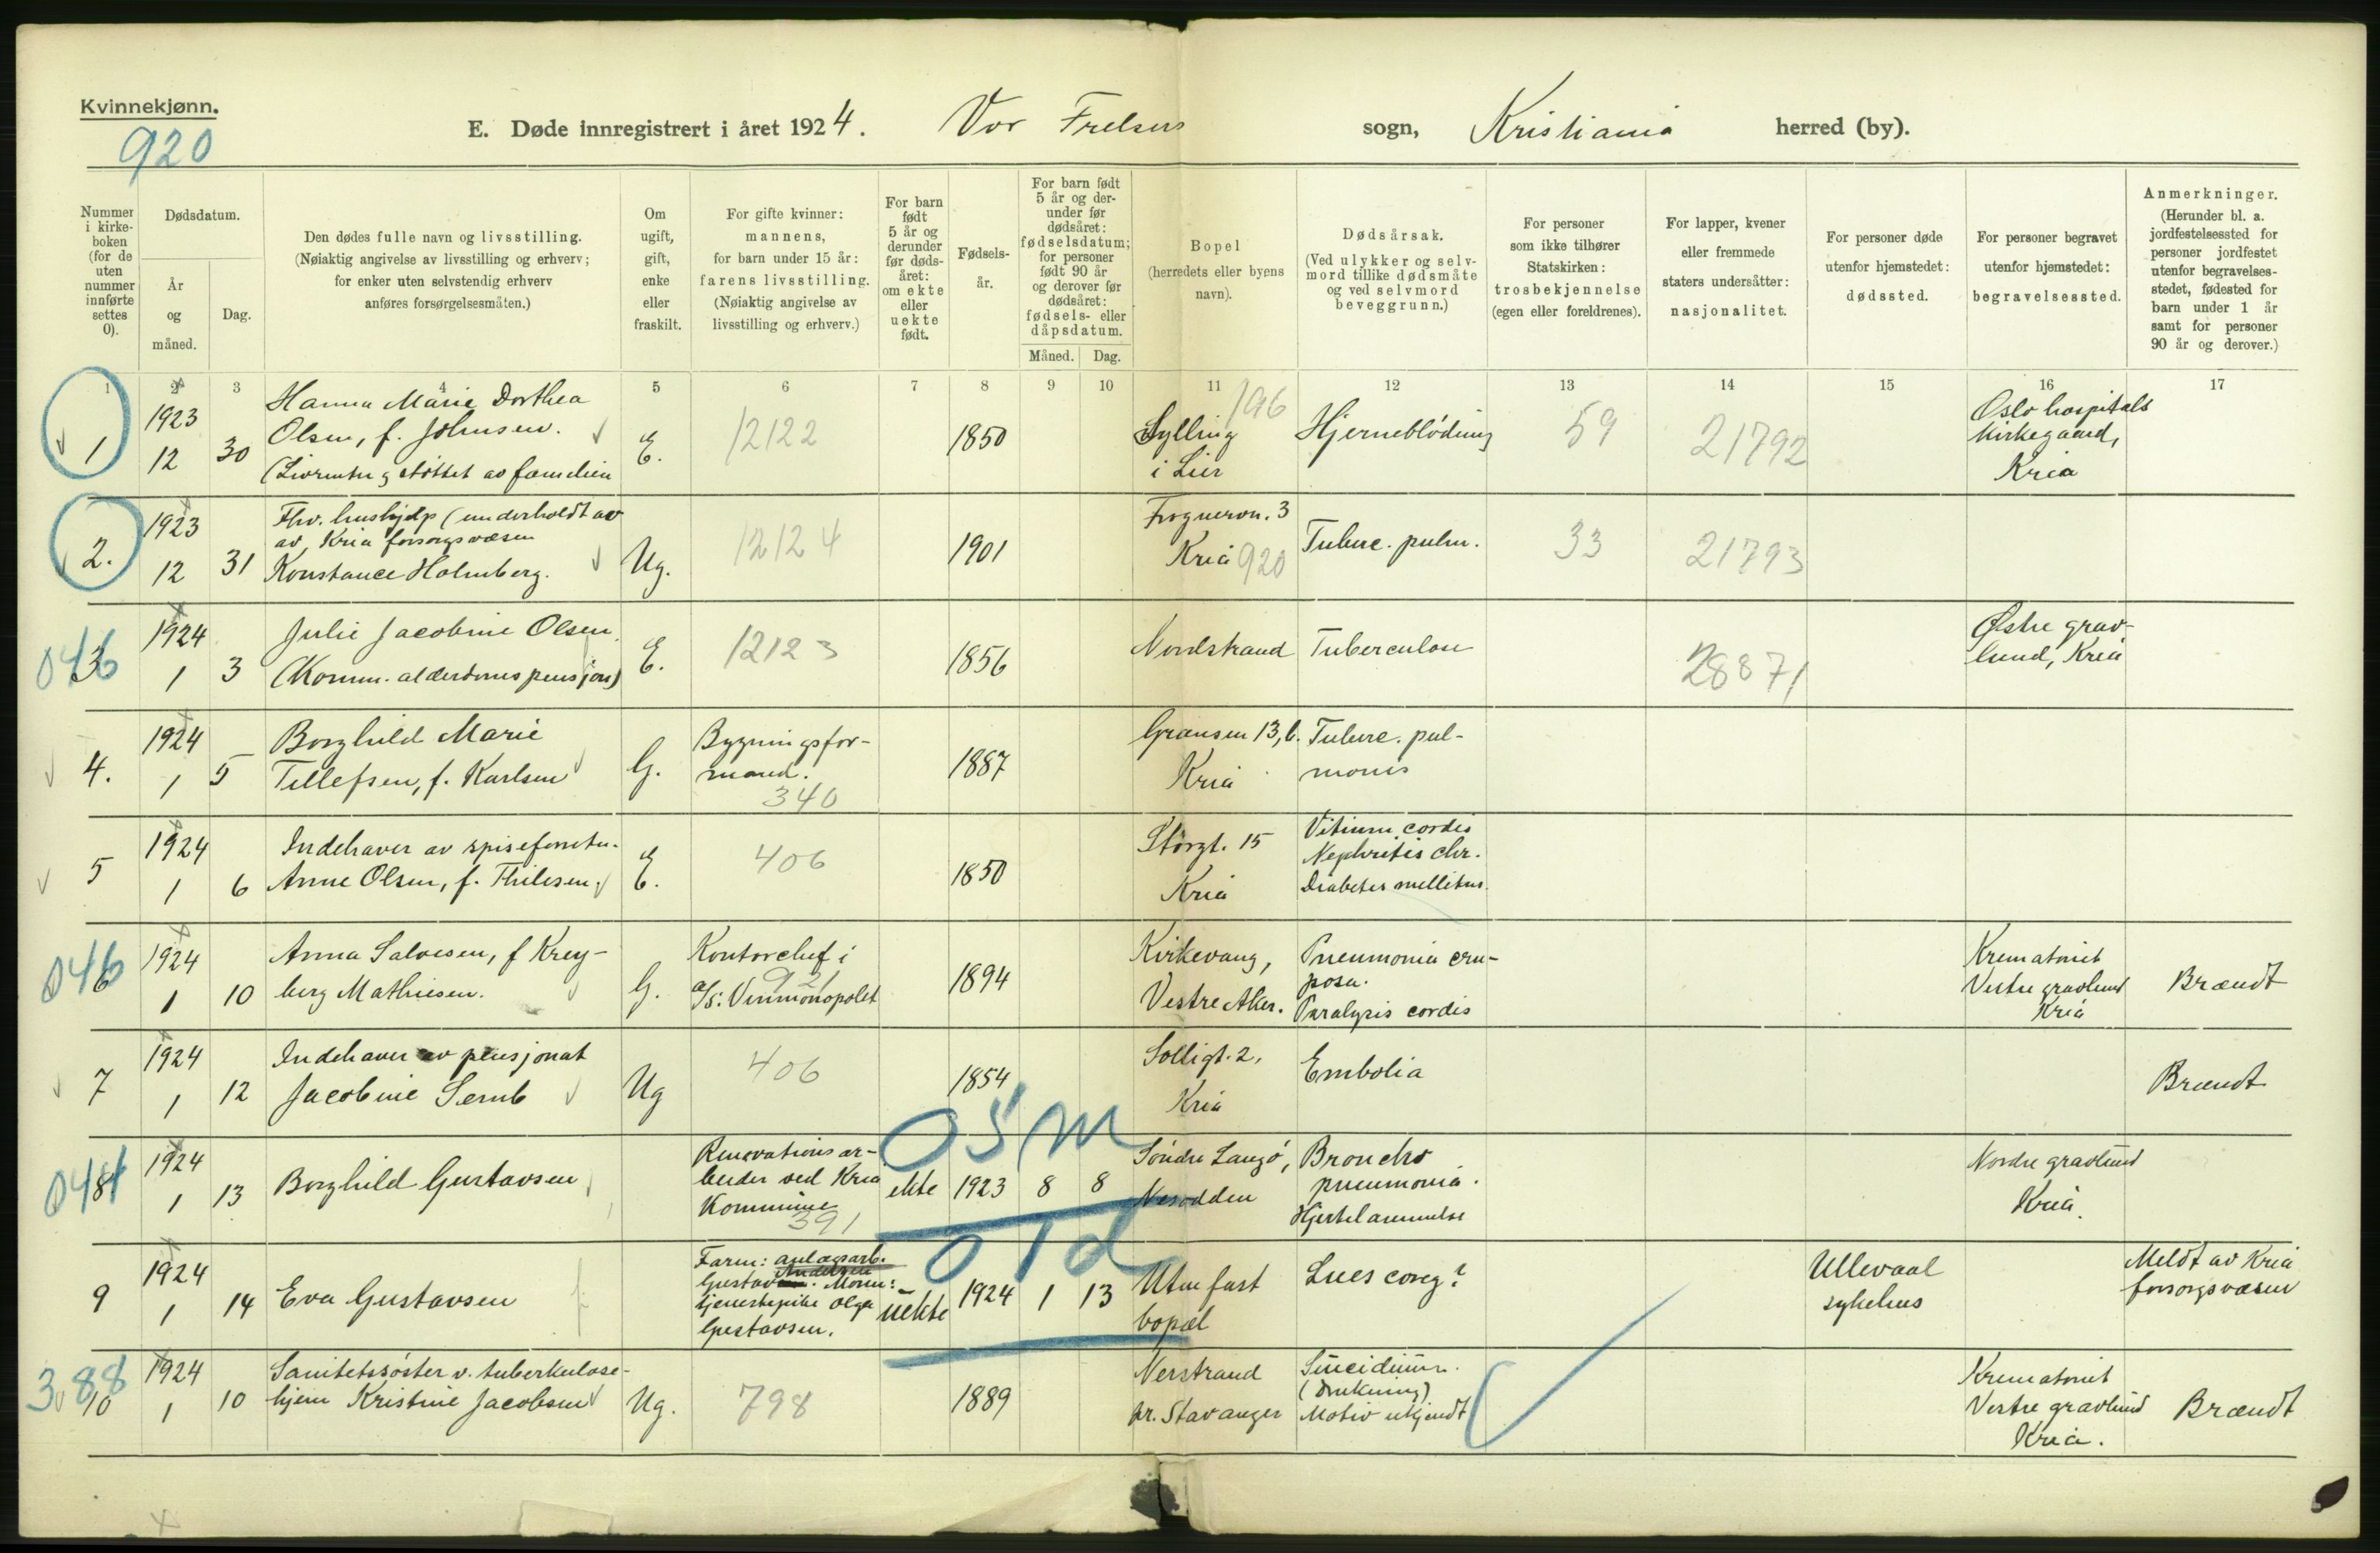 Kvinnekjønn.
920
E. Døde innregistrert i året 1924. Vor Frelsers sogn, Kristiania herred (by).
Nummer i kirke-boken (for de uten nummer innførte settes 0).
Dødsdatum.
År og måned.
Dag.
Den dødes fulle navn og livsstilling.
(Nøiaktig angivelse av livsstilling og erhverv;
for enker uten selvstendig erhverv
anføres forsørgelsesmåten.)
Om ugift, gift, enke eller fraskilt.
For gifte kvinner:
mannens,
for barn under 15 år:
farens livsstilling.
(Nøiaktig angivelse av
livsstilling og erhverv.)
For barn født 5 år og derunder før døds-året: om ekte eller uekte født.
Fødsels-år.
For barn født
5 år og der-
under før
dødsåret:
fødselsdatum;
for personer
født 90 år
og derover før
dødsåret:
fødsels- eller
dåpsdatum.
Måned. Dag.
Bopel
(herredets eller byens
navn).
Dødsårsak.
(Ved ulykker og selv-
mord tillike dødsmåte
og ved selvmord
beveggrunn.)
For personer
som ikke tilhører
Statskirken:
trosbekjennelse
(egen eller foreldrenes).
For lapper, kvener
eller fremmede
staters undersåtter:
nasjonalitet.
For personer døde
utenfor hjemstedet:
dødssted.
For personer begravet
utenfor hjemstedet:
begravelsessted.
Anmerkninger.
(Herunder bl. a.
jordfestelsessted for
personer jordfestet
utenfor begravelses-
stedet, fødested for
barn under 1 år
samt for personer
90 år og derover.)
1 2 3 4 5 6 7 8 9 10 11 12 13 14 15 16 17
1 1923 12 30
Hanna Marie Dorthea
Olsen, f. Johnsen.
(Livrente og støttet av familien
E. 12122 1850
196
Sylling
i Lier
Hjerneblødning 59 21792
Oslo hospitals
kirkegaard,
Kria
2. 1923 12 31
Fhv. hushjelp (underholdt av
av Kria forsorgsvæsen
Konstance Holmberg.
Ug. 12124 1901
Frognervn. 3
Kria 920
Tuberc. pulm. 33 21793
046
3 1924 1 3
Julie Jacobine Olsen.
(Komm. alderdomspensjon)
E. 12123 1856
Nordstrand
Tuberculose 28871
Østre grav-
lund, Kria
4. 1924 1 5
Borghild Marie
Tellefsen, f. Karlsen
G.
Bygningsfor-
mand.
340
1887
Grænsen 13, b.
Kria
Tuberc. pul-
monis
5 1924 1 6
Indehaver av spiseforretn.
Anne Olsen, f. Thilesen.
E. 406 1850
Storgt. 15
Kria
Vitium cordis
Nephritis chr.
Diabetes mellitus.
046
6 1924 1 10
Anna Salvesen, f Krey-
berg Mathiesen.
G.
Kontorchef i
921
a/s: Vinmonopolet
1894
Kirkevang,
Vestre Aker.
Pneumonia cru-
posa.
Paralysis cordis
Krematoriet
Vestre gravlund
Kria
Brændt
7 1924 1 12
Indehaver av pensjonat
Jacobine Semb
Ug 406 1854
Solligt. 2,
Kria
Embolia
Brændt
05 m
044
8 1924 1 13
Borghild Gustavsen
Renovationsar-
beider ved Kria
Kommune
391
ekte 1923 8 8
Søndre Langø,
Nesodden
Broncho
pneumonia.
Hjertelammelse
Nordre gravlund
Kria.
01 d
9 1924 1 14
Eva Gustavsen
Farm: anlægsarb.
Gustav Andersen. Morm:
tjenestepike Olga
Gustavsen.
uekte 1924 1 13
Uten fast
bopæl
Lues cong?
Ullevaal
sykehus
Meldt av Kria
forsorgsvæsen
388
10 1924 1 10
Sanitetssøster v. tuberkulose-
hjem Kristine Jacobsen
Ug. 798 1889
Nerstrand
pr. Stavanger
Suicidium.
(Drukning)
Motiv ukjendt
Krematoriet
Vestre gravlund
Kria.
Brændt